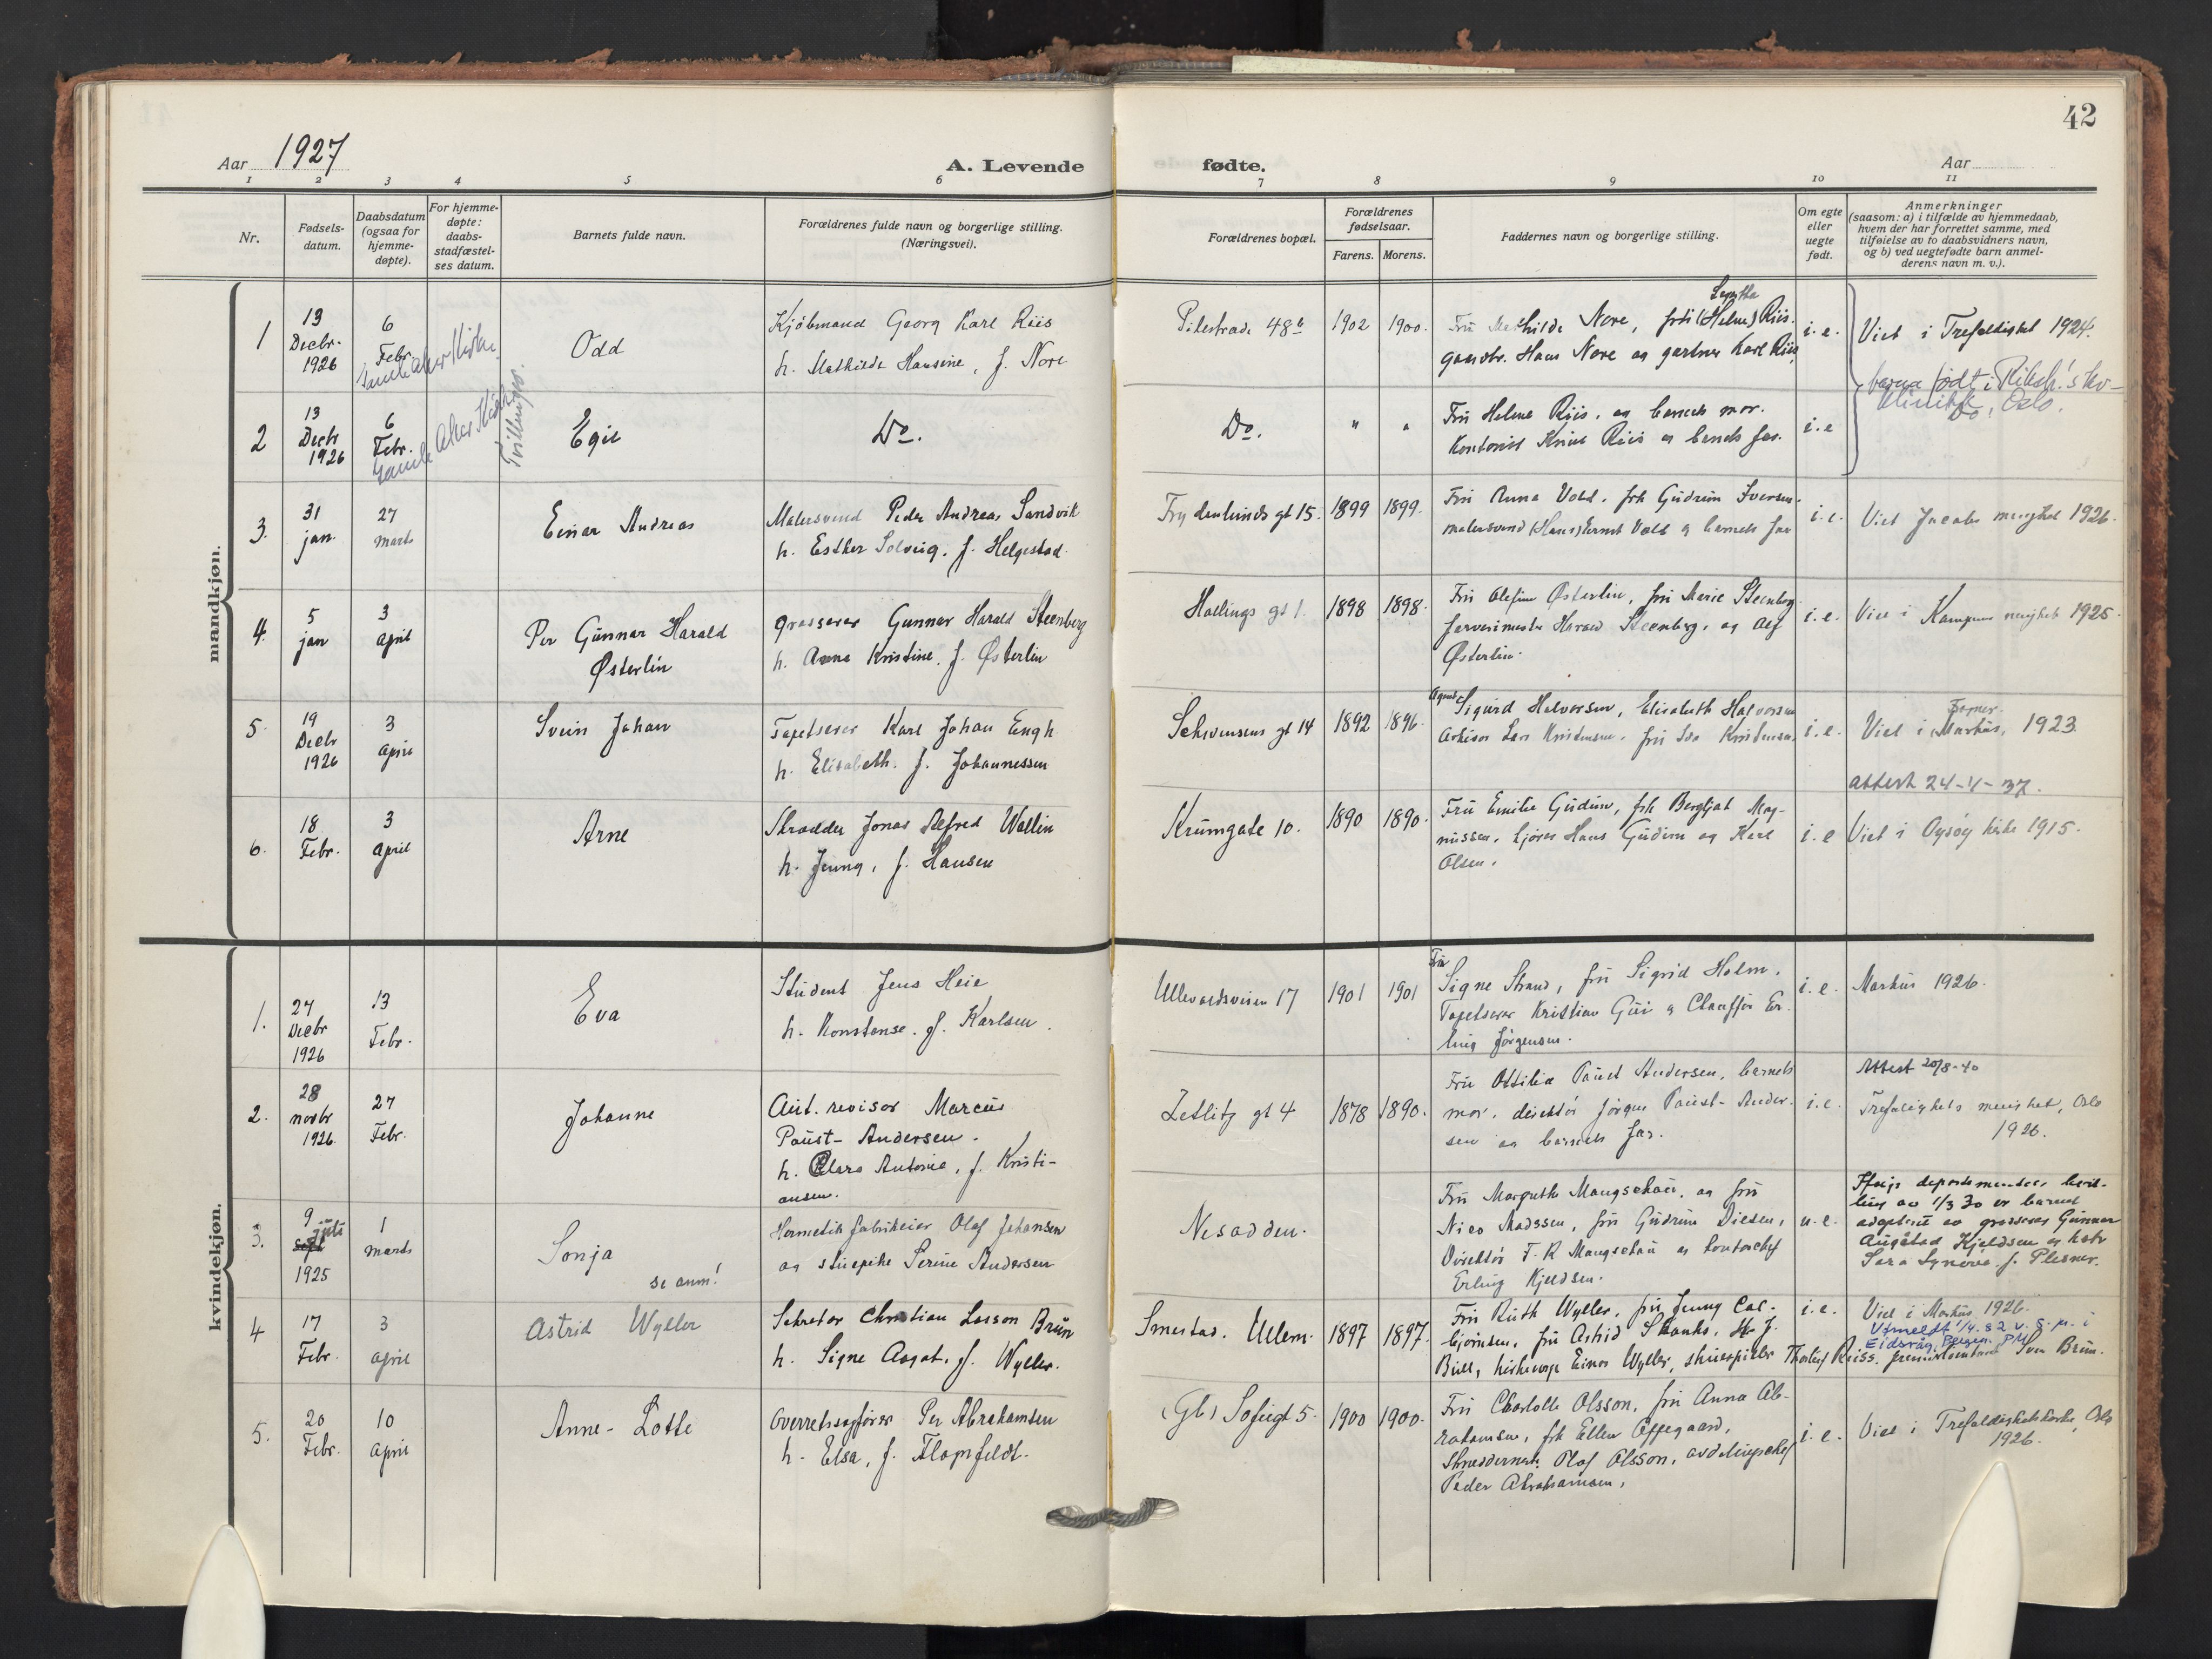 42
Aar 1927
A. Levende fødte.
Aar
1 2 3 4 5 6 7 8 9 10 11
Nr.
Fødsels-
datum.
Daabsdatum
(ogsaa for
hjemme-
døpte).
For hjemme-
døpte:
daabs-
stadfæstel-
ses datum.
Barnets fulde navn.
Forældrenes fulde navn og borgerlige stilling.
(Næringsvei).
Forældrenes bopæl.
Forældrenes
fødselsaar.
Farens. Morens.
Faddernes navn og borgerlige stilling.
Om egte
eller
uegte
født.
Anmerkninger
(saasom: a) i tilfælde av hjemmedaab,
hvem der har forrettet samme, med
tilføielse av to daabsvidners navn,
og b) ved uegtefødte barn anmel-
derens navn m. v.).
mandkjøn.
1
13
Decbr.
1926
6
Febr.
Gamle Aker Kirke.
Tvillinger.
Odd
Kjøbmand Georg Karl Riis
h. Mathilde Hansine, f. Nore
Pilestræde 48b
1902 1900.
Fru Mathilde Nore, frk (Helene) Riis.
gaardbr. Hans Nore og gartner Karl Riis
i. e.
Viet i Trefoldighet 1924.
barna født i Riksh.'s kv-
klinikk, Oslo.
2
13
Decbr
1926
6
Febr.
Gamle Aker Kirke
Egil
Do.
Do.
" "
Fru Helene Riis, og barnets mor.
Kontorist Riis og barnets far.
i. e
Do
3.
31
jan.
27
marts
Einar Andreas
Malersvend Peder Andreas Sandvik
h. Esther Solveig. f. Helgestad.
Frydenlunds gt 15.
1899 1899.
Fru Anna Vold, frk Gudrun Iversen.
malersvend (Hans) Ernst Vold og barnets far
i. e.
Viet Jacobs menighet 1926.
4.
5
jan
3
april
Per Gunnar Harald
Østerlin
grosserer Gunnar Harald Steenberg
h. Anna Kristine, f. Østerlin
Hallings gt 1.
1898 1898.
Fru Olefine Østerlin, fru Marie Steenberg
farverimester Harald Steenberg, og Alf
Østerlin.
i. e.
Viet i Kampen menighet 1925.
5.
19
Decbr
1926
3
april
Svein Johan
Tapetserer Karl Johan Engh
h. Elisabeth. f. Johannessen
Schwensens gt 14
1892 1896.
Agent Sigurd Halvorsen, Elisabeth Halvorsen
Lars Kristensen, fru Kristensen.
i. e.
Viet i Markus, 1923.
attest 24-4-37.
6.
18
Febr.
3
april
Arne
Skrædder Jonas Alfred Wallin
h. Jenny, f. Hansen
Krumgate 10.
1890 1890.
Fru Emilie Gudim, frk Bergljot Mag-
nussen, kjører Hans Gudim og Karl
Olsen.
i. e
Viet i kirke 1915.
kvindekjøn.
1.
24
Decbr
1926
13
Febr.
Eva
Student Jens Heie
h. Konstanse. f. Karlsen.
Ullevaalsveien 17
1901 1901
Fru
Signe Strand, fru Sigrid Holm.
Tapetserer Kristian og Chauffør Er-
ling Jørgensen.
i. e.
Markus 1926.
2.
28
novbr
1926.
27
Febr.
Johanne
Aut. revisor Marcus
Paust-Andersen.
h. Klara Antonie, f. Kristi-
ansen.
Zetlitz gt 4
1878 1890.
Fru Ottilia Paust Andersen, barnets
mor, direktør Jørgen Paust-Ander-
sen og barnets far.
i. e.
Attest 20/8-40
Trefoldighets menighet, Oslo
1926.
3.
9
juli
sept
1925
1
marts
Sonja
se anm!
Hermetikfabrikeier Olaf Johansen
og stuepike Serine Andersen
Nesodden.
Fru Margrethe Mangschau, og fru
Nico Madssen, fru Gudrun Diesen,
Direktør F. R Mangschau og kontorchef
Erling Kjeldsen.
u. e.
Ifølge departementets bevil-
ling av 1/3 30 er barnet
adoptert av grosserer Gunnar
Augstad Kjeldsen og hstr
Sara Synøve f. Plesner.
4
17
Febr.
3
april
Astrid Wyller
Sekretær Christian Lasson Brun
h. Signe Aagot, f. Wyller.
Smestad. Ullern.
1897 1897.
Fru Ruth Wyller, fru Jenny Cal-
bjørnsen, fru Astrid Skanke, Hr J.
Bull, kirkeverge Einar Wyller, skuespiller Thorleif Reiss, Sven Brun.
i. e.
Viet i Markus 1926.
Utmeldt 1/4.82 v. s.m. i
Eidsvåg, Bergen. PM
5.
20
Febr.
10
april
Anne-Lotte
Overretssagfører Per Abrahamsen
h. Elsa, f. Flopfeldt.
(Gb) Sofiegt 5.
1900 1900.
Fru Charlotte Olsson, fru Anna Ab-
rahamsen, frk Ellen Oppegaard,
Skræddermest. Olaf Olsson, avdelingschef
Peder Abrahamsen,
i. e.
Viet i Trefoldighetskirke, Oslo
1926.